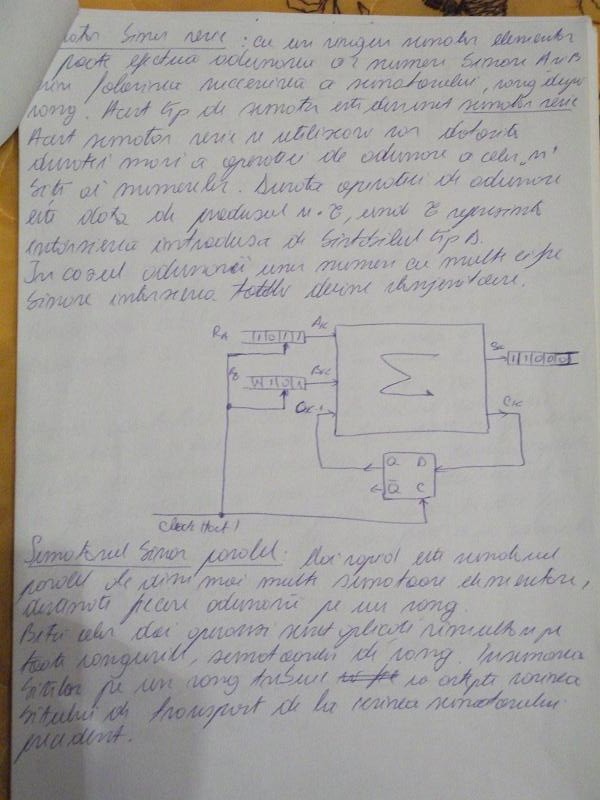 Sumator Binar serie : cu un singur sumator elementar
poate efectua adunarea a 2 numeri Binare A si B
prin folosirea succesiva a sumatorului, rang dupa
rang. Acest tip de sumator este denumit sumator serie
Acest sumator serie se utilizeaza rar datorita
duratei mari a operatiei de adunare a celor "n"
Biti ai numerelor. Durata operatiei de adunare
este data de produsul n·τ, unde τ reprezinta
intarzierea introdusa de Bistabilul tip D.
In cazul adunarii unor numere cu multe cifre
Binare intarzierea devine deranjatoare.
RA 1 0 1 1 AK
RB 1 1 0 1 BK
CK-1 Σ SK 1 1 0 0 0
CK
Q D
Q̄ C
Clock start 1
Sumatorul Binar paralel: Mai rapid este sumatorul
paralel de dim mai multe sumatoare elementare,
destinate fiecare adunarii pe un rang.
Bitii celor doi operanzi sunt aplicati simultan pe
toate rangurile, sumatoarelor de rang. Insumarea
Bitilor pe un rang trebuie sa astepte sosirea
Bitului de transport de la iesirea sumatorului
precedent.